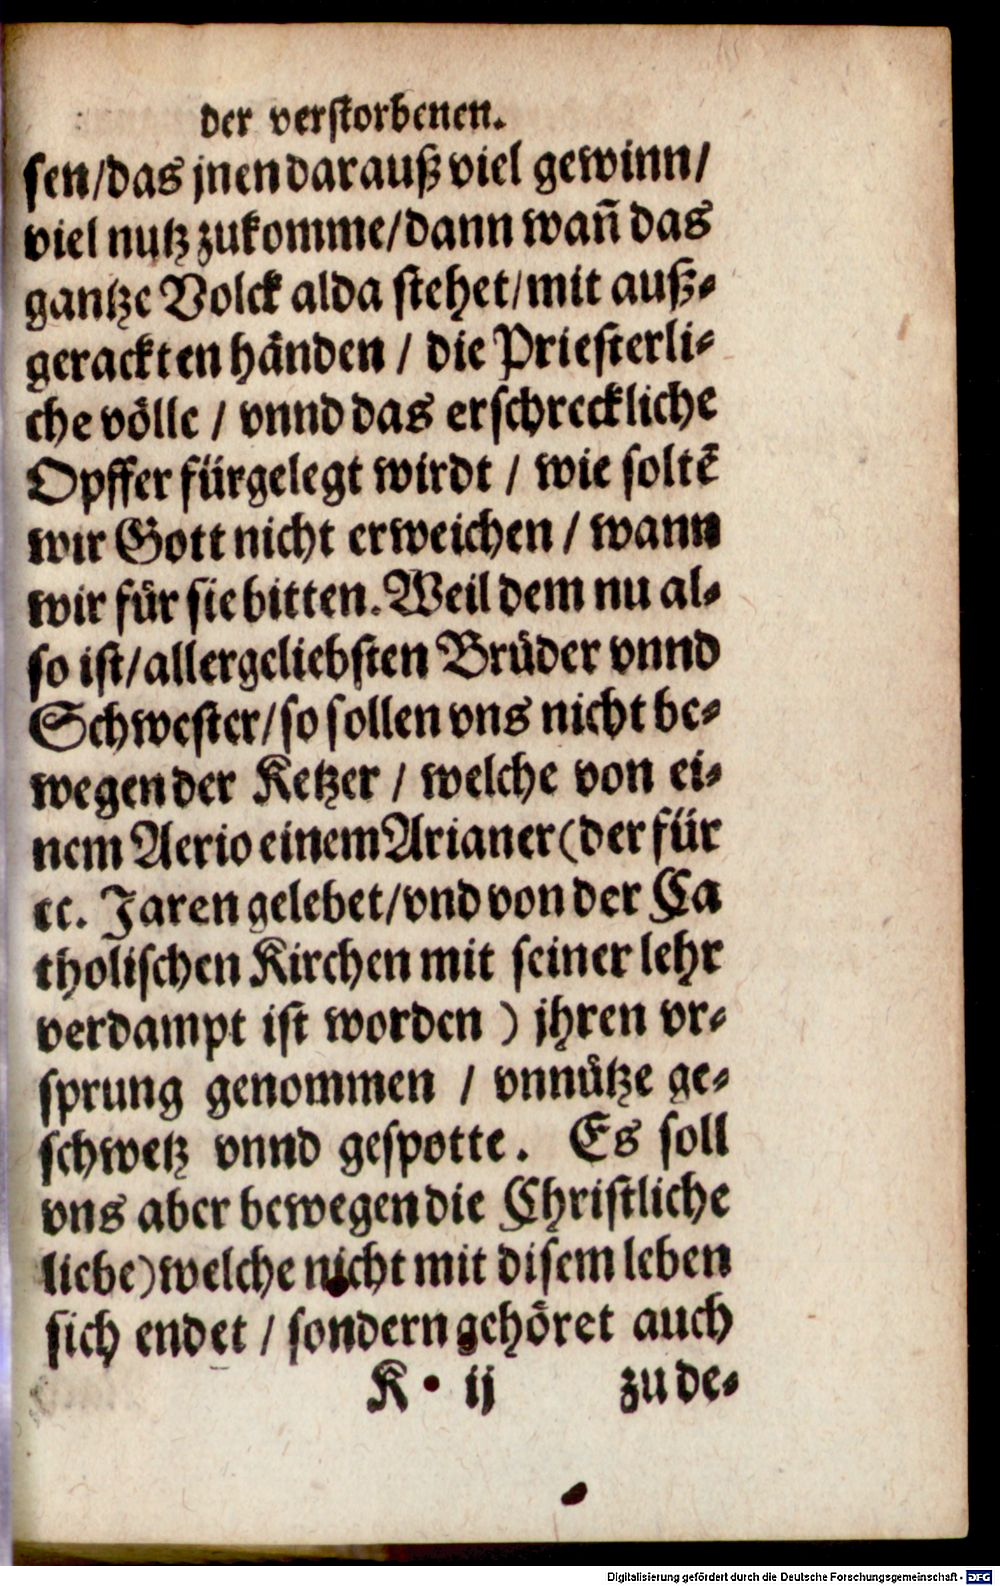 der verstorbenen.
sen/das jnen darauß viel gewinn/
viel nutz zukomme/dann wañ das
gantze Volck alda stehet/mit auß-
gerackten händen / die Priesterli-
che völle / vnnd das erschreckliche
Opffer fürgelegt wirdt / wie soltẽ
wir Gott nicht erweichen / wann
wir für sie bitten. Weil dem nu al-
so ist/allergeliebsten Brüder vnnd
Schwester/so sollen vns nicht be-
wegen der Ketzer / welche von ei-
nem Aerio einem Arianer (der für
cc. Jaren gelebet/vnd von der Ca
tholischen Kirchen mit seiner lehr
verdampt ist worden ) jhren vr-
sprung genommen / vnnütze ge-
schwetz vnnd gespotte. Es soll
vns aber bewegen die Christliche
liebe) welche nicht mit disem leben
sich endet / sondern gehöret auch
K • ij zu de-
Digitalisierung gefördert durch die Deutsche Forschungsgemeinschaft - DFG